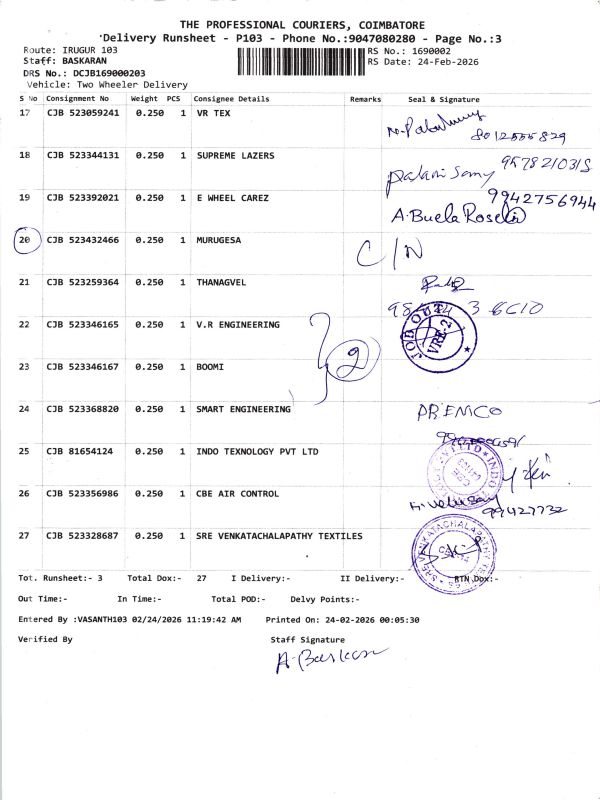 THE PROFESSIONAL COURIERS, COIMBATORE
'Delivery Runsheet - P103 - Phone No.:9047080280 - Page No.:3
Route: IRUGUR 103
RS No.: 1690002
Staff: BASKARAN
RS Date: 24-Feb-2026
DRS No.: DCJB169000203
Vehicle: Two Wheeler Delivery
S No Consignment No Weight PCS Consignee Details Remarks Seal & Signature
17 CJB 523059241 0.250 1 VR TEX
8012555829
18 CJB 523344131 0.250 1 SUPREME LAZERS
Palani Samy 9578210315
19 CJB 523392021 0.250 1 E WHEEL CAREZ 9942756944
A. Buela Roselin
20 CJB 523432466 0.250 1 MURUGESA C/N
21 CJB 523259364 0.250 1 THANAGVEL
22 CJB 523346165 0.250 1 V.R ENGINEERING
JOB OUT VRE-2
2
23 CJB 523346167 0.250 1 BOOMI
24 CJB 523368820 0.250 1 SMART ENGINEERING PREMCO
25 CJB 81654124 0.250 1 INDO TEXNOLOGY PVT LTD
26 CJB 523356986 0.250 1 CBE AIR CONTROL
27 CJB 523328687 0.250 1 SRE VENKATACHALAPATHY TEXTILES
Tot. Runsheet:- 3 Total Dox:- 27 I Delivery:- II Delivery:- RTN Dox:-
Out Time:- In Time:- Total POD:- Delvy Points:-
Entered By :VASANTH103 02/24/2026 11:19:42 AM Printed On: 24-02-2026 00:05:30
Verified By Staff Signature
A. Baskaran